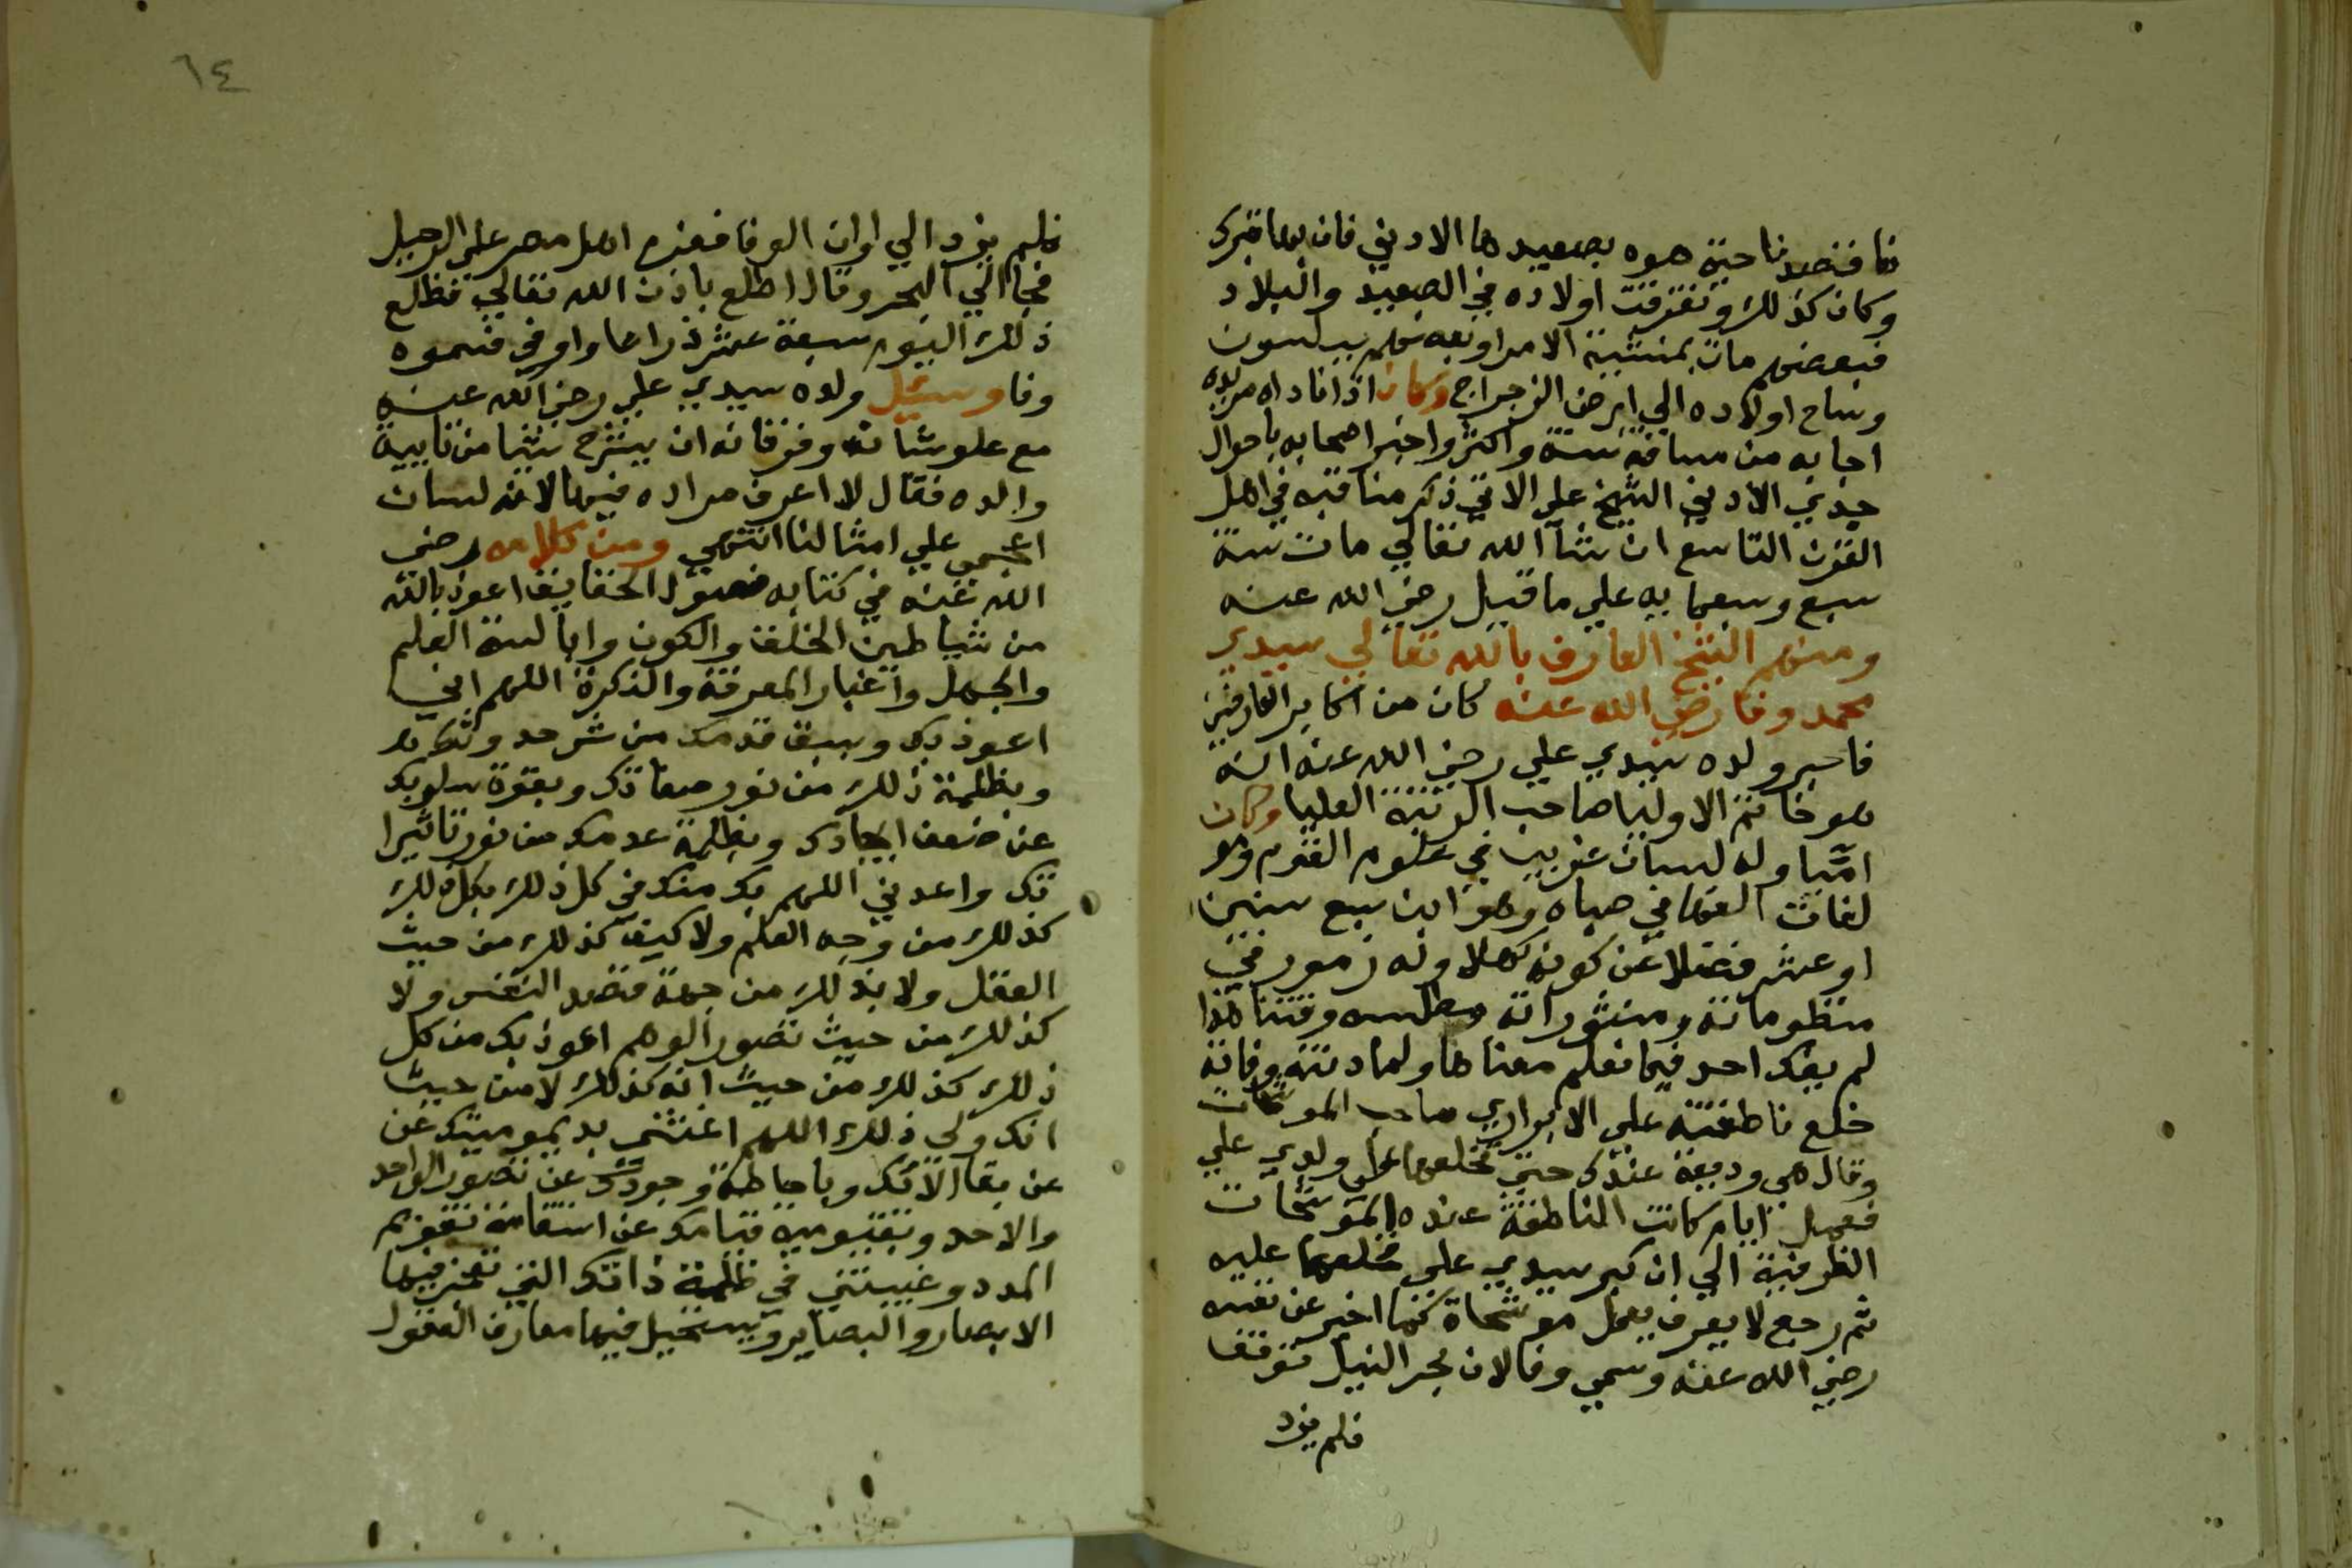 نا فاقصد ناحية هوه بصعيدها الادني فان بها قبرك
وكان كذلك وتفرقت اولاده في الصعيد والبلاد
فبعضهم مات بمنشية الامرا وبعضهم ببلسون
وساح اولاده الي ارض الزجراج وكان اذا ناداه مريده
اجابه من مسافة سنة واكثر واخبر اصحابه باحوال
جدي الادني الشيخ علي الاتي ذكر مناقبه في اهل
القرن التاسع ان شآ الله تعالي مات سنة
سبع وسبعمايه علي ما قيل رضي الله عنه
ومنهم الشيخ العارف بالله تعالي سيدي
محمد وفا رضي الله عنه كان من اكابر العارفين
فاخبر ولده سيدي علي رضي الله عنه انه
هو خاتم الاوليا صاحب الرتبة العليا وكان
اميا وله لسان غريب في علوم القوم وهو
لفات الفها في صباه وهو ابن سبع سنين
او عشر فضلا عن كونه كهلا وله رموز في
منظوماته ومنثوراته مطلسمه وقتنا هذا
لم يفك احد فيما نعلم معناها ولما دنت وفاته
خلع ناطقته علي الابزاري صاحب الموشحات
وقال هي وديعة عندك حتي تخلعها علي ولدي علي
فعمل ايام كانت المناطقة عنده الموشحات
الظرفية الي ان كبر سيدي علي فخلعها عليه
ثم رجع لا يعرف يعمل موشحاة كما اخبر عن نفسه
رضي الله عنه وسمي وفا لان بحر النيل توقف
فلم يزد
٦٤
فلم يزد الي اوان الوفا فعزم اهل مصر علي الرحيل
فجا الي البحر وقال اطلع باذن الله تعالي فطلع
ذلك اليوم سبعة عشر ذراعا واوفي فسموه
وفا وسئيل ولده سيدي علي رضي الله عنه
مع علو شانه وفرقانه ان يشرح شيا من تايية
والده فقال لا اعرف مراده فيها لانه لسان
اعجمي علي امثالنا انتهي ومن كلامه رضي
الله عنه في كتابه فصول الحقايق اعوذ بالله
من شياطين الخلق والكون وابالسة العلم
والجهل واغيار المعرفة والنكرة اللهم اني
اعوذ بك وبسبق قدمك من شر حدوثك
وبظلمة ذلك من نور صفاتك وبقوة سلوبك
عن ضعف ايجادك وبظلمة عدمك من نور تاثيرا
تك واعدني اللهم بك منك في كل ذلك بكل ذلك
كذلك من وجه العلم ولا كيف كذلك من حيث
العقل ولا بذلك من جهة قصد النفس ولا
كذلك من حيث تصور الوهم اعوذ بك من كل
ذلك كذلك من حيث انه كذلك لا من حيث
انك ولي ذلك اللهم اغنني بديموميتك عن
عن بقا الائك وباحاطة وجودك عن تصور الواحد
والاحد وبقيومية قيامك عن استقامة تقويم
المدد وغيبتني في ظلمة ذاتك التي تعجز فيها
الابصار والبصاير ويستحيل فيها معارف العقول